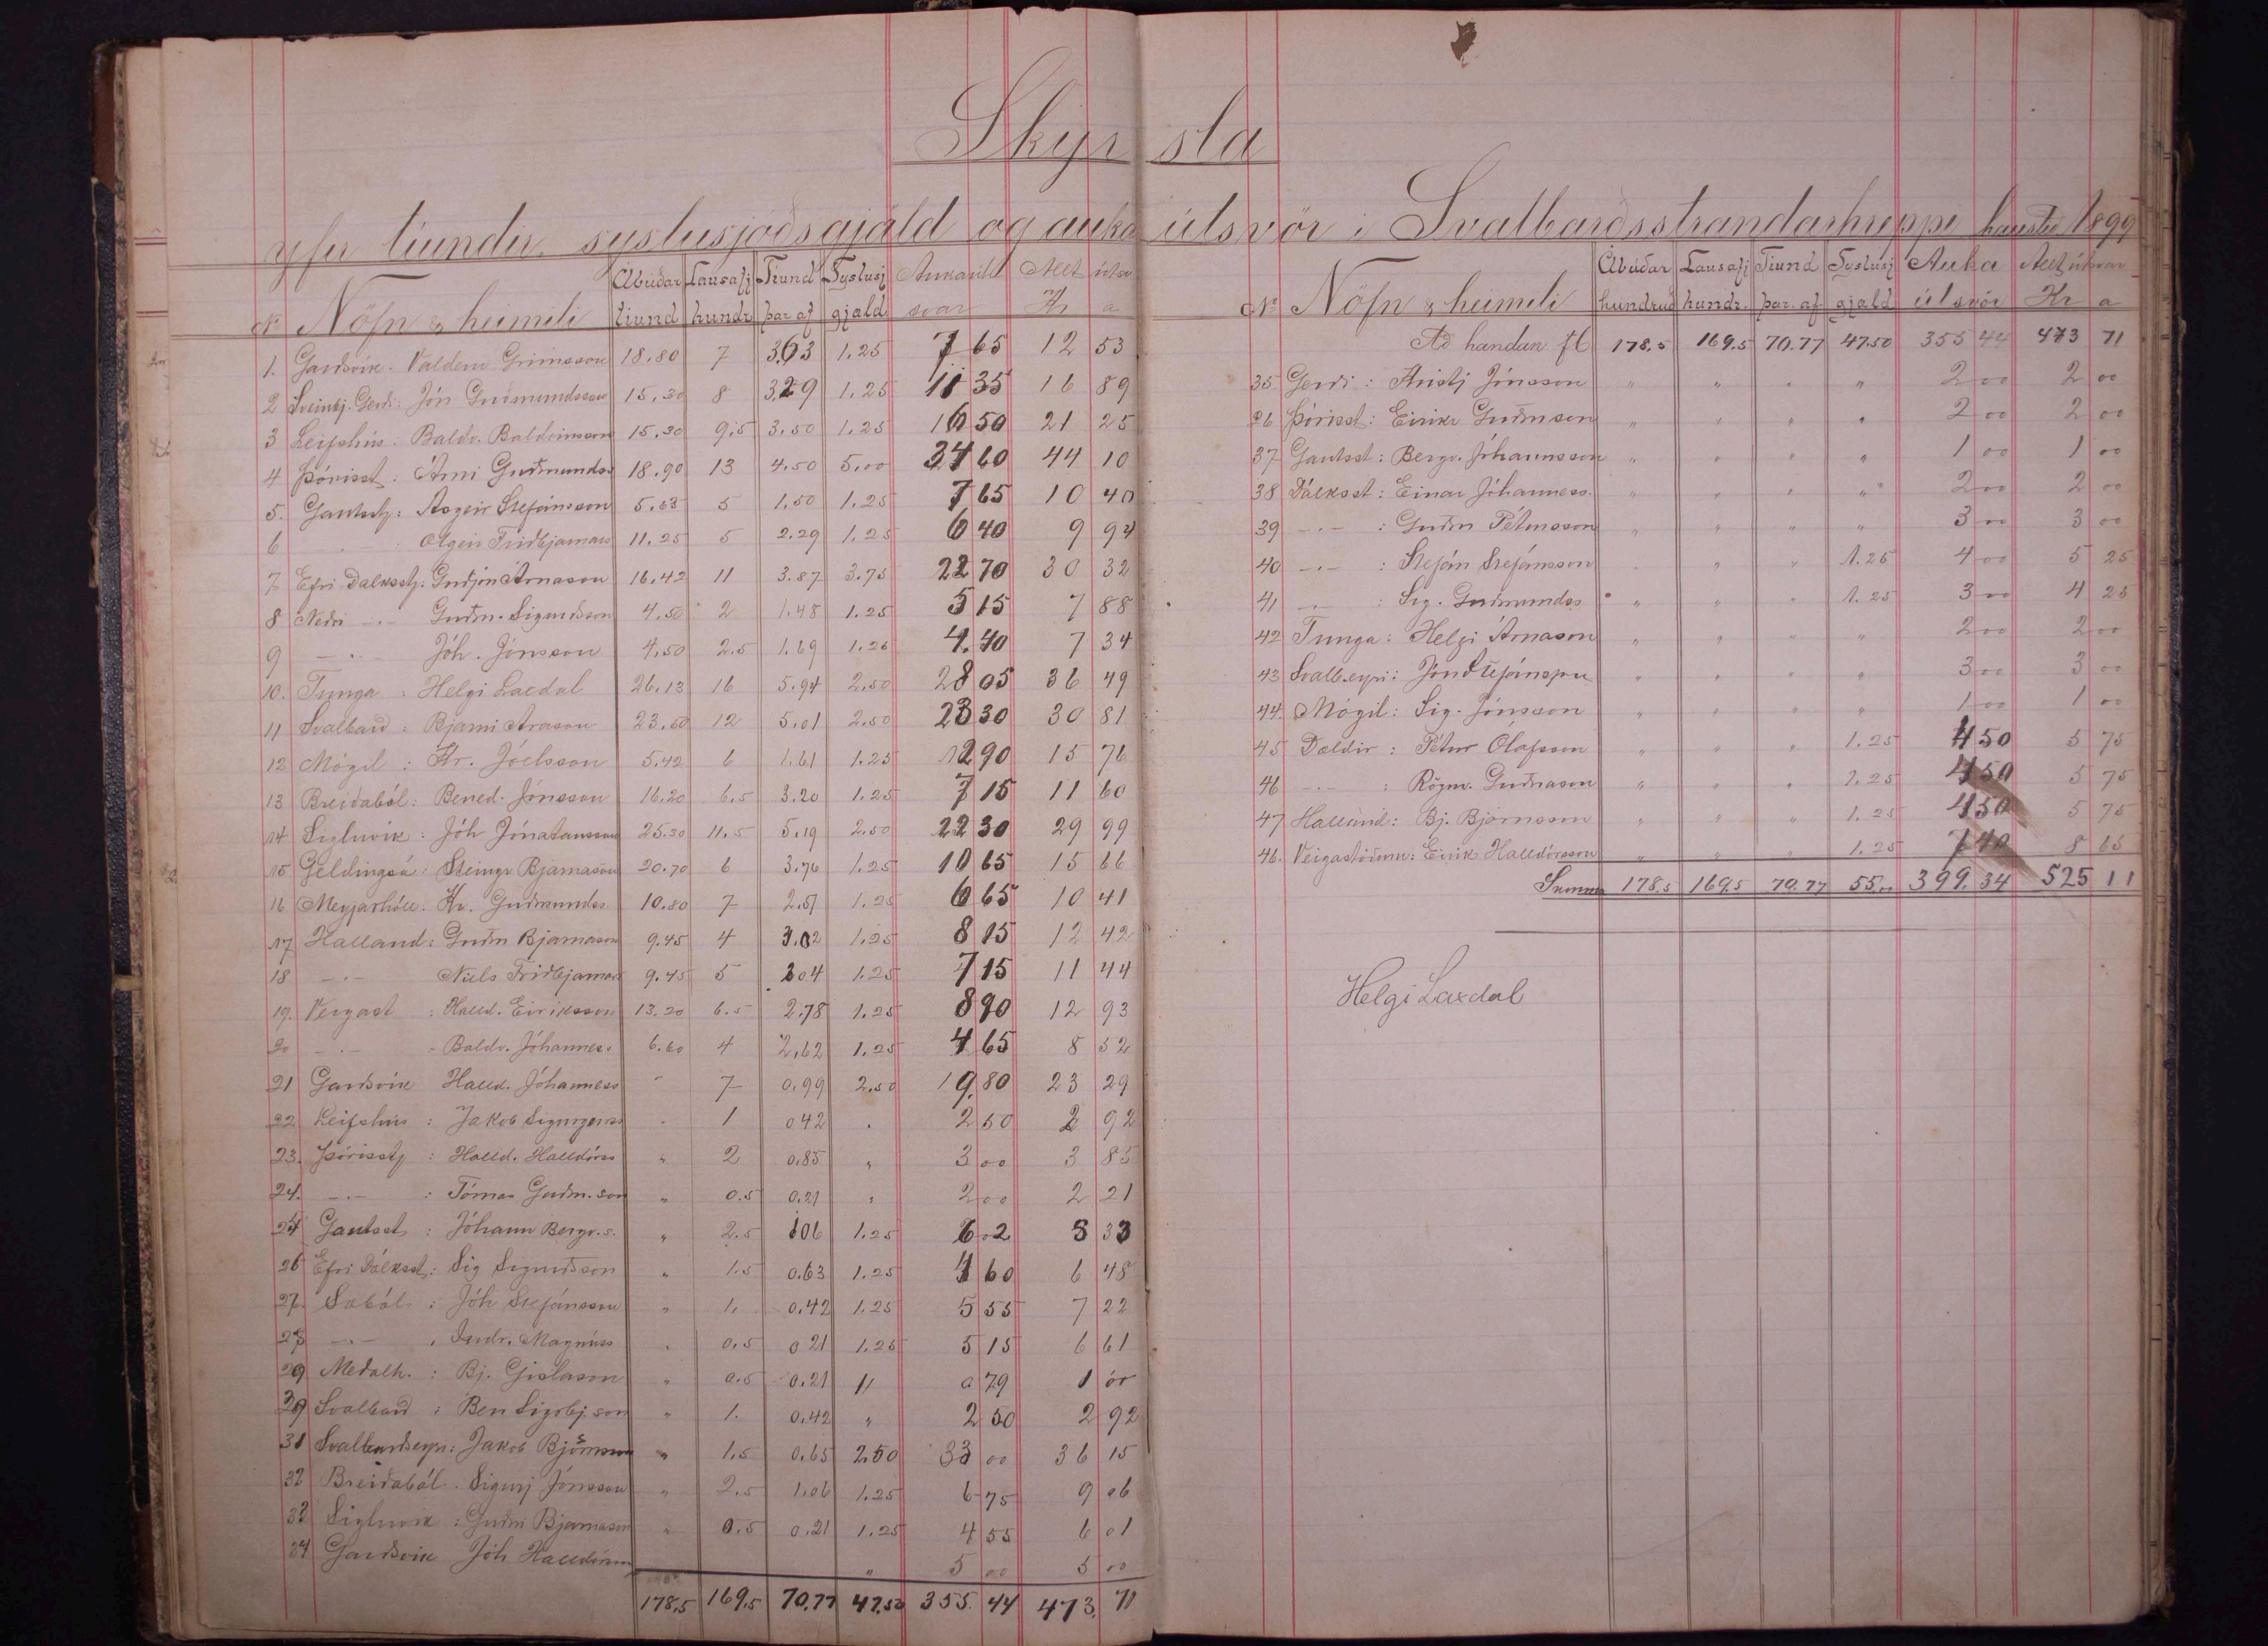 Skýrsla
yfir tiundir, syslusjóðsgjald og auka útsvör i Svalbarðsstrandarhreppi haustið 1899
Nr Nöfn & heimili Ábúðar tiund Lausafj hundr Tiund þar af Syslusj gjald Aukaút svar Allt útsv Kr a
1. Garðsvík. Valdem Grimsson 18.80 7 3.63 1.25 7 65 12 53
2 Sveinbj. Gerði: Jón Guðmundsson 15.30 8 3.29 1.25 11 35 16 89
3 Leifshús. Baldv. Baldvinsson 15.30 9,5 3.50 1.25 16 50 21 25
4 Þórisst: Árni Guðmundss 18.90 13 4.50 5.00 34 60 44 10
5. Gautsstj: Asgeir Stefánsson 5.63 5 1.50 1.25 7 65 10 40
6 Olgeir Friðbjarnars 11.25 5 2.29 1.25 6 40 9 94
7 Efri Dálksstj: Guðjón Árnason 16.42 11 3.87 3.75 22 70 30 32
8 Neðri -.- Guðm. Sigurðsson 4.50 2 1.48 1.25 5 15 7 88
9 -.- Jóh. Jónsson 4.50 2.5 1.69 1.25 4.40 7 34
10. Tunga : Helgi Laxdal 26.13 16 5.94 2.50 28 05 36 49
11 Svalbarð : Bjarni Arason 23.60 12 5.01 2.50 23 30 30 81
12 Mógil : Kr. Jóelsson 5.42 6 1.61 1.25 12 90 15 76
13 Breiðaból: Bened. Jónsson 16.20 6.5 3.20 1.25 7 15 11 60
14 Sigluvík : Jóh Jónatansson 25.30 11.5 5.19 2.50 22 30 29 99
15 Geldingsá: Steingr Bjarnason 20.70 6 3.76 1.25 10 65 15 66
16 Meyjarhóll. Kr. Guðmundss 10.80 7 2.51 1.25 6 65 10 41
17 Halland: Guðm Bjarnason 9.45 4 3.02 1.25 8 15 12 42
18 -.- Niels Friðbjarnars 9.45 5 3 04 1.25 7 15 11 44
19. Veigast : Halld. Eiriksson 13.20 6.5 2.78 1.25 8 90 12 93
20 -.- Baldv. Jóhanness 6.60 4 2,62 1.25 4 65 8 52
21 Garðsvík Halld. Jóhanness " 7 0.99 2.50 19.80 23 29
22 Leifshús : Jakob Sigurgeirss . 1 0 42 . 2 50 2 92
23. Þórisstj : Halld. Halldórss " 2 0.85 " 3 00 3 85
24. -.- : Tómas Guðm.son " 0.5 0.21 " 2 00 2 21
Gautsst : Jóhann Bergv.s. " 2.5 1 06 1.25 6 02 8 33
26 Efri Dálksst: Sig Sigurðsson " 1.5 0.63 1.25 4 60 6 48
27. Sæból : Jóh Stefánsson " 1. 0.42 1.25 5 55 7 22
28 -.- . Indr. Magnúss . 0.5 0 21 1.25 5 15 6 61
29 Meðalh. : Bj. Gislason " 0.5 0.21 11 0 79 1 00
30 Svalbarð : Ben Sigrbj.son " 1. 0.42 " 2 50 2 92
31 Svalbarðseyr: Jakob Björnsson " 1.5 0.65 2.50 33 00 36 15
32 Breiðaból. Sigurj Jónsson " 2.5 1.06 1.25 6 75 9 06
33 Sigluvík : Guðni Bjarnason " 0.5 0.21 1.25 4 55 6 01
34 Garðsvík Jóh Halldórsson " 5 00 5 00
178.5 169.5 70.77 47.50 355. 44 473. 71
Nr Nöfn & heimili Ábúðar hundruð Lausafj hundr. Tiund þar af Syslusj gjald Auka útsvör Allt útsvar Kr a
Að handan fl 178.5 169.5 70.77 47.50 355 44 473 71
35 Gerði : Kristj Jónsson " " " " 2 00 2 00
36 Þórisst: Eirikr Guðmson " " " " 2 00 2 00
37 Gautsst: Bergv. Jóhannsson " " " " 1 00 1 00
38 Dálksst: Einar Jóhanness. " " " " 2 00 2 00
39 -.- : Guðm Pétursson " " " " 3 00 3 00
40 -.- : Stefán Stefánsson " " " 1.25 4 00 5 25
41 -.- : Sig. Guðmundss " " " 1.25 3 00 4 25
42 Tunga : Helgi Árnason " " " " 2 00 2 00
43 Svalb.eyri: Jón Stefánsson " " " " 3 00 3 00
44. Mógil: Sig. Jónsson " " " " 1 00 1 00
45 Dældir : Pétur Ólafsson " " " 1.25 4 50 5 75
46 -.- : Rögnv. Guðnason " " " 1.25 4 50 5 75
47 Halland: Bj. Björnsson " " " 1.25 4 50 5 75
48. Veigastöðum: Eirik Halldórsson " " " 1.25 7 40 8 65
Summa 178.5 169.5 70.77 55.00 399. 34 525 11
Helgi Laxdal